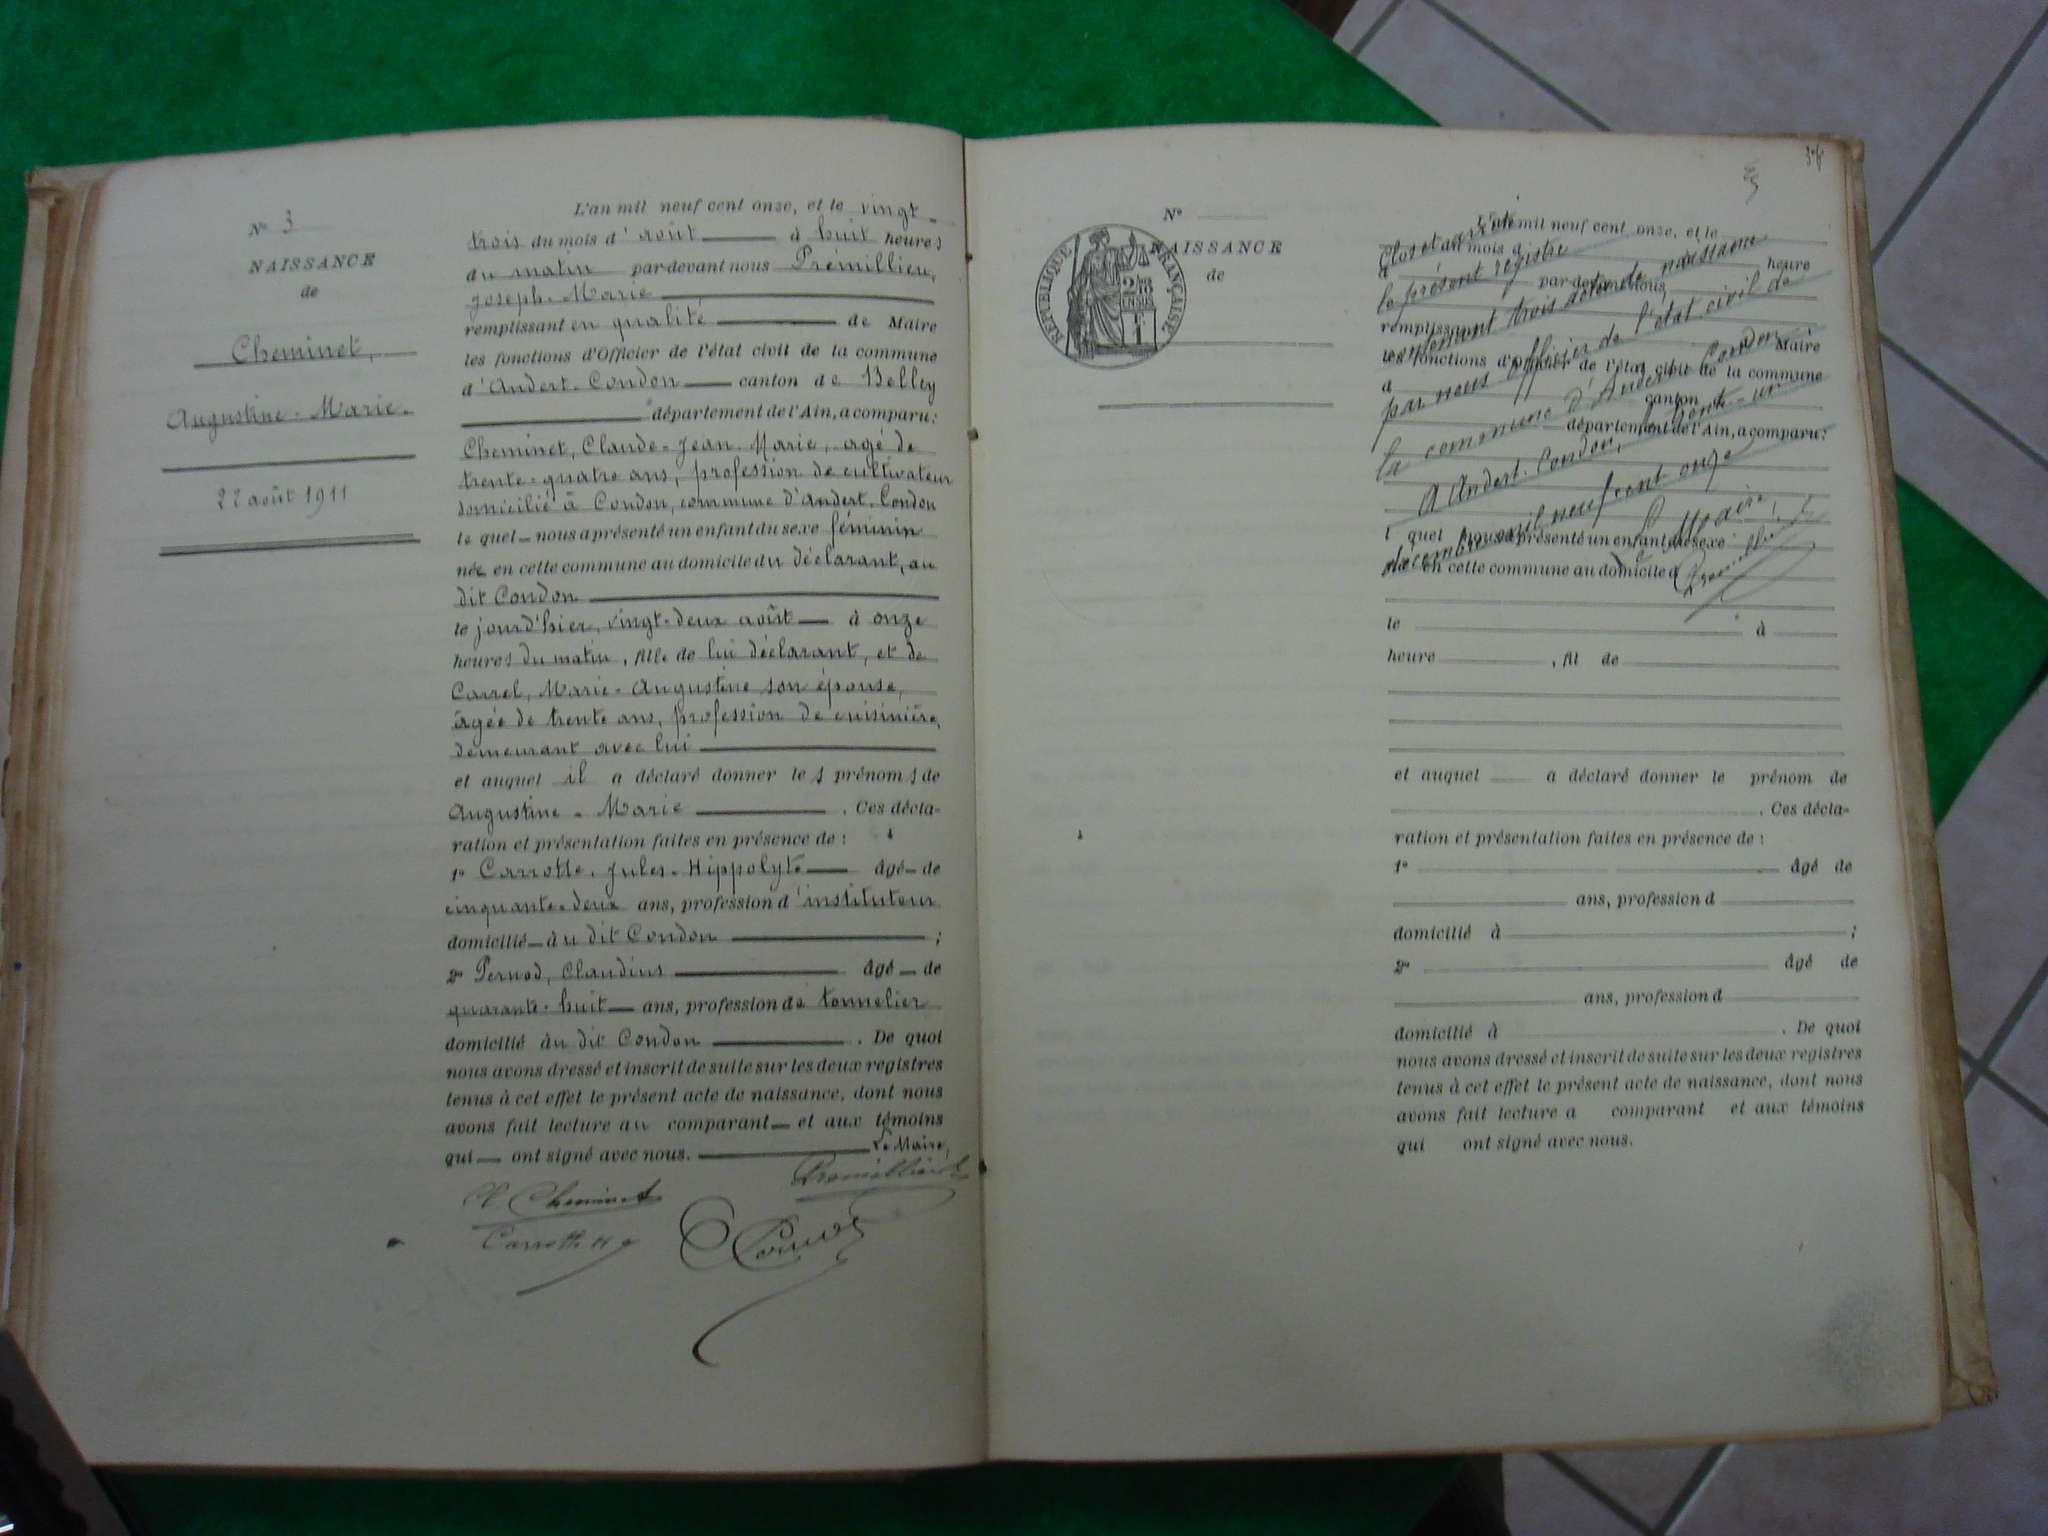 N° 3
NAISSANCE
de
Cheminet,
Augustine-Marie.
22 août 1911
L'an mil neuf cent onze, et le vingt-
trois du mois d'août à huit heures
du matin par-devant nous Prémillieu,
Joseph-Marie
remplissant en qualité de Maire
les fonctions d'Officier de l'état civil de la commune
d'Andert-Condon canton de Belley
département de l'Ain, a comparu:
Cheminet, Claude-Jean-Marie, agé de
trente-quatre ans, profession de cultivateur
domicilié à Condon, commune d'Andert-Condon
le quel nous a présenté un enfant du sexe féminin
née en cette commune au domicile du déclarant, au
dit Condon
le jourd'hier, vingt-deux août à onze
heures du matin, fille de lui déclarant, et de
Carrel, Marie-Augustine son épouse,
âgée de trente ans, profession de cuisinière,
demeurant avec lui
et auquel il a déclaré donner les prénoms de
Augustine-Marie. Ces décla-
ration et présentation faites en présence de :
1° Carrotte, Jules-Hippolyte âgé de
cinquante-deux ans, profession d'instituteur
domicilié au dit Condon ;
2° Pernod, Claudius âgé de
quarante-huit ans, profession de tonnelier
domicilié au dit Condon. De quoi
nous avons dressé et inscrit de suite sur les deux registres
tenus à cet effet le présent acte de naissance, dont nous
avons fait lecture au comparant et aux témoins
qui ont signé avec nous. Le Maire,
Cheminet
Carrotte
Pernod
N°
NAISSANCE
de
RÉPUBLIQUE FRANÇAISE
Clos et arrêté
le présent registre
contenant trois actes de naissance
par nous officier de l'état civil de
la commune d'Andert-Condon
A Andert-Condon, le trente-un
décembre mil neuf cent onze
Le Maire,
L'an mil neuf cent onze, et le
du mois d à heure
par-devant nous
remplissant Maire
les fonctions d'Officier de l'état civil de la commune
d canton
département de l'Ain, a comparu:
l quel nous a présenté un enfant du sexe
né en cette commune au domicile d
le à
heure , fil de
et auquel a déclaré donner le prénom de
. Ces décla-
ration et présentation faites en présence de :
1° âgé de
ans, profession d
domicilié à ;
2° âgé de
ans, profession d
domicilié à . De quoi
nous avons dressé et inscrit de suite sur les deux registres
tenus à cet effet le présent acte de naissance, dont nous
avons fait lecture a comparant et aux témoins
qui ont signé avec nous.